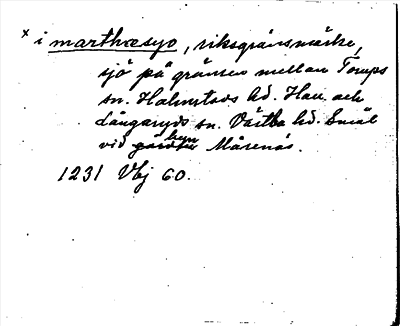 × i marthæsyo, riksgränsmärke,
sjö på gränsen mellan Torups
sn. Halmstads hd. Hall. och
Långaryds sn. Västbo hd. Smål
vid byn Mårenäs.
1231 Vbj 60.